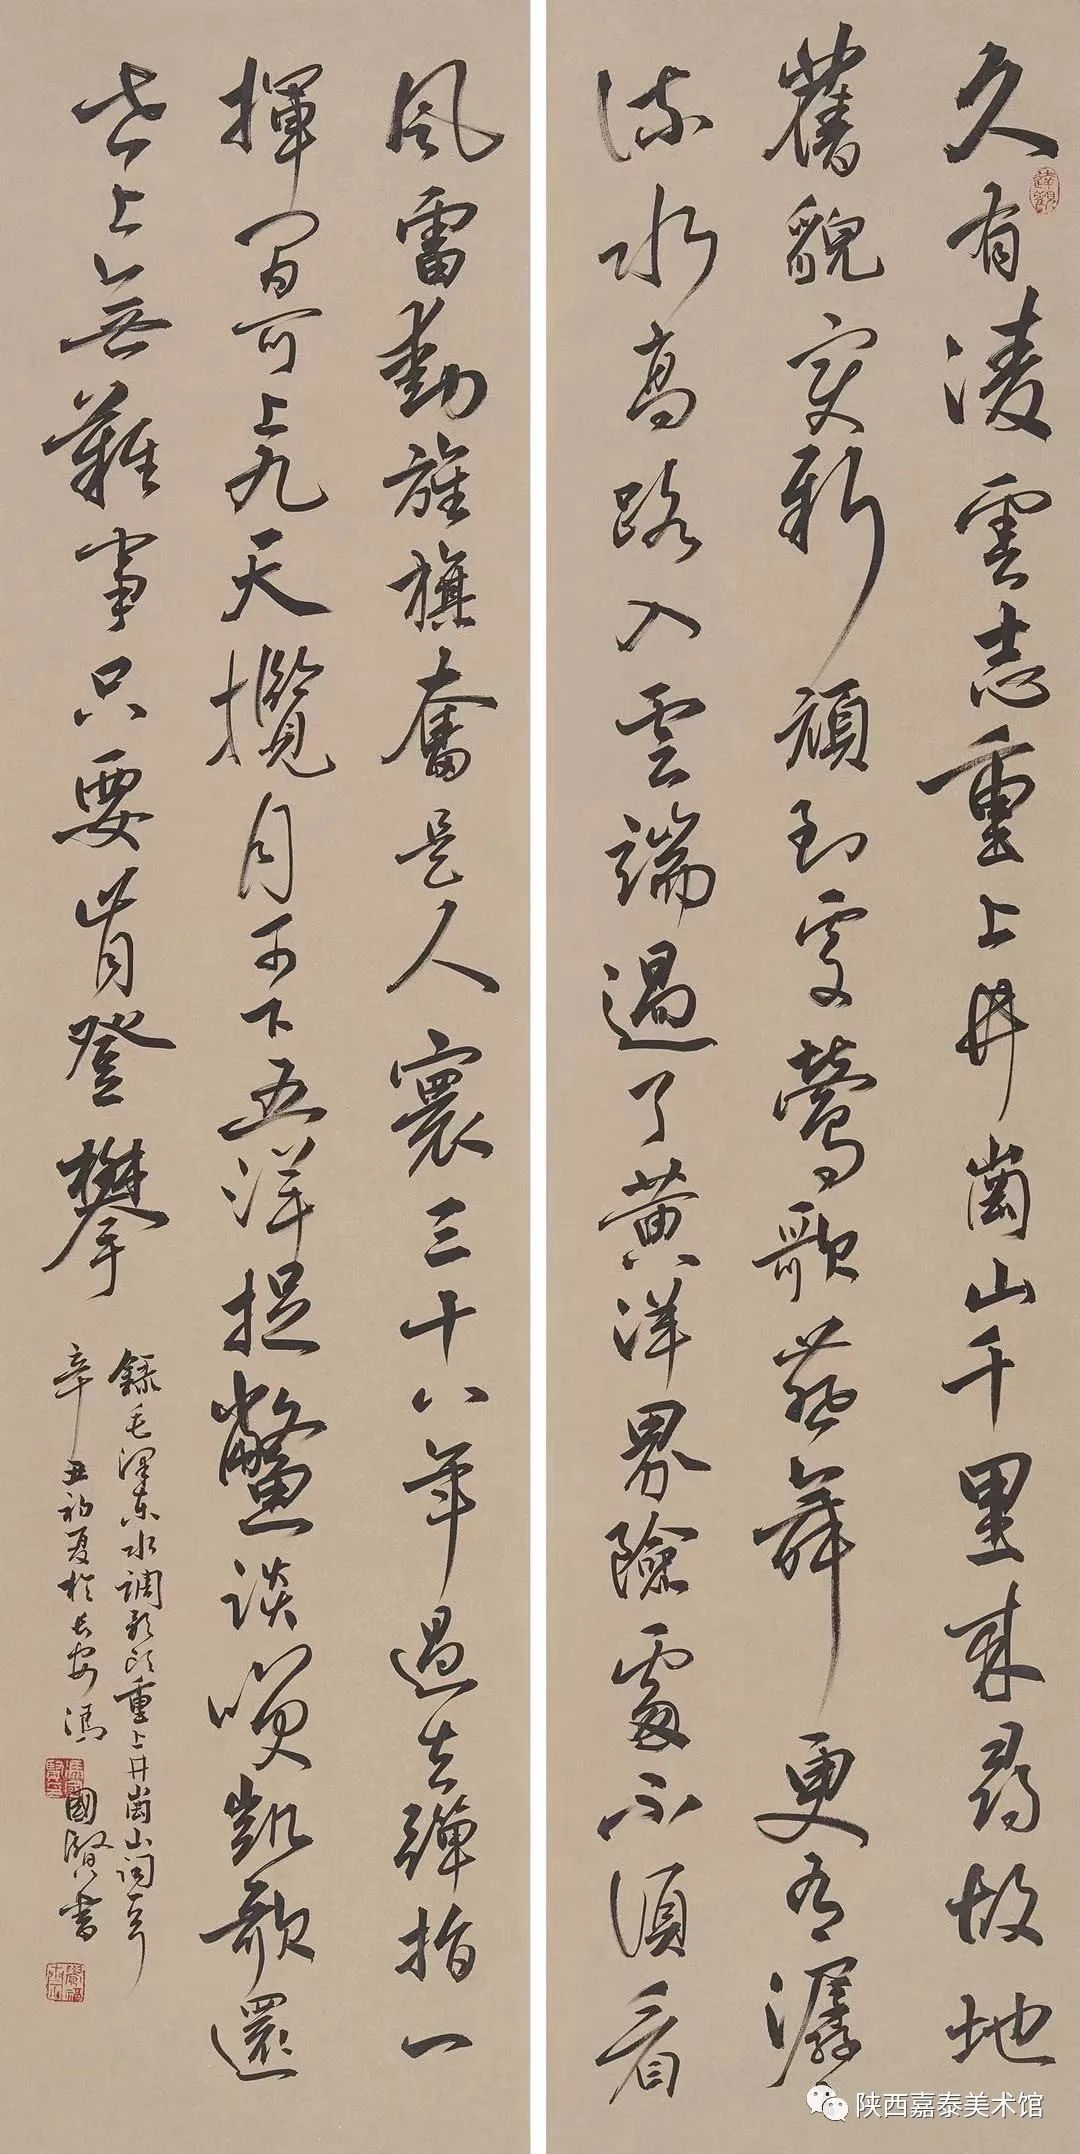 久有淩雲志重上井崗山千里來尋故地
舊貌變新顏到處鶯歌燕舞更有潺
流水高路入雲端過了黃洋界險處不須看
風雷動旌旗奮是人寰三十八年過去彈指一
揮間可上九天攬月可下五洋捉鱉談笑凱歌還
世上無難事只要肯登攀
錄毛澤東水調歌頭重上井崗山詞一首
辛丑初夏於長安馮國賢書
達觀
陕西嘉泰美术馆